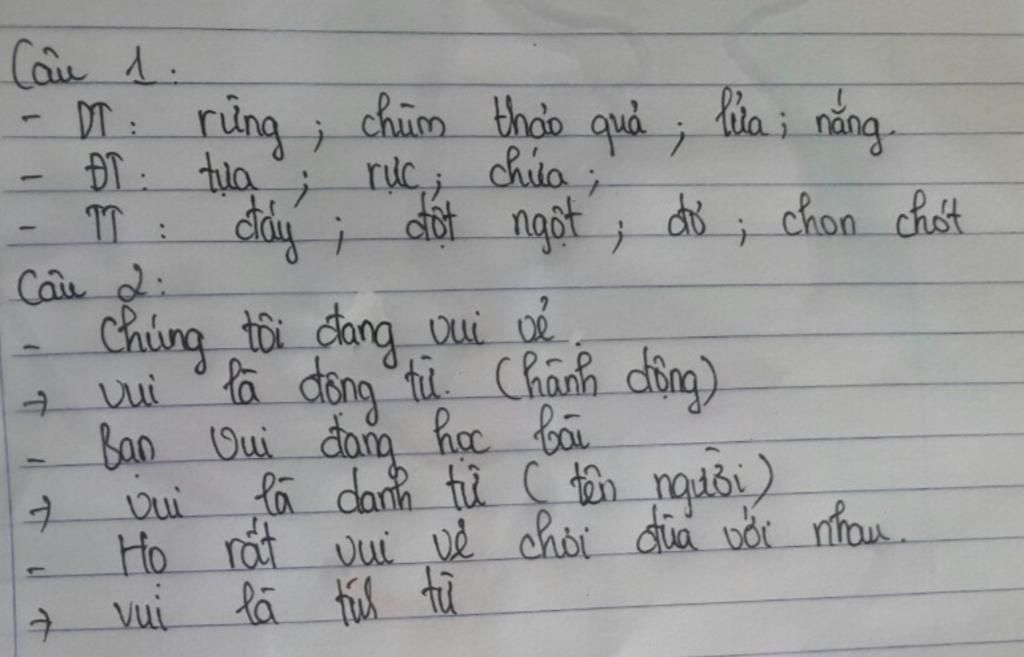 Câu 1:
- DT: rừng; chùm thảo quả; lửa; nắng.
- ĐT: tựa; rực; chứa;
- TT: đáy; đột ngột; đỏ; chon chót
Câu 2:
- Chúng tôi đang vui vẻ.
→ vui là động từ. (hành động)
- Bạn Vui đang học bài
→ vui là danh từ (tên người)
- Họ rất vui vẻ chơi đùa với nhau.
→ vui là tính từ